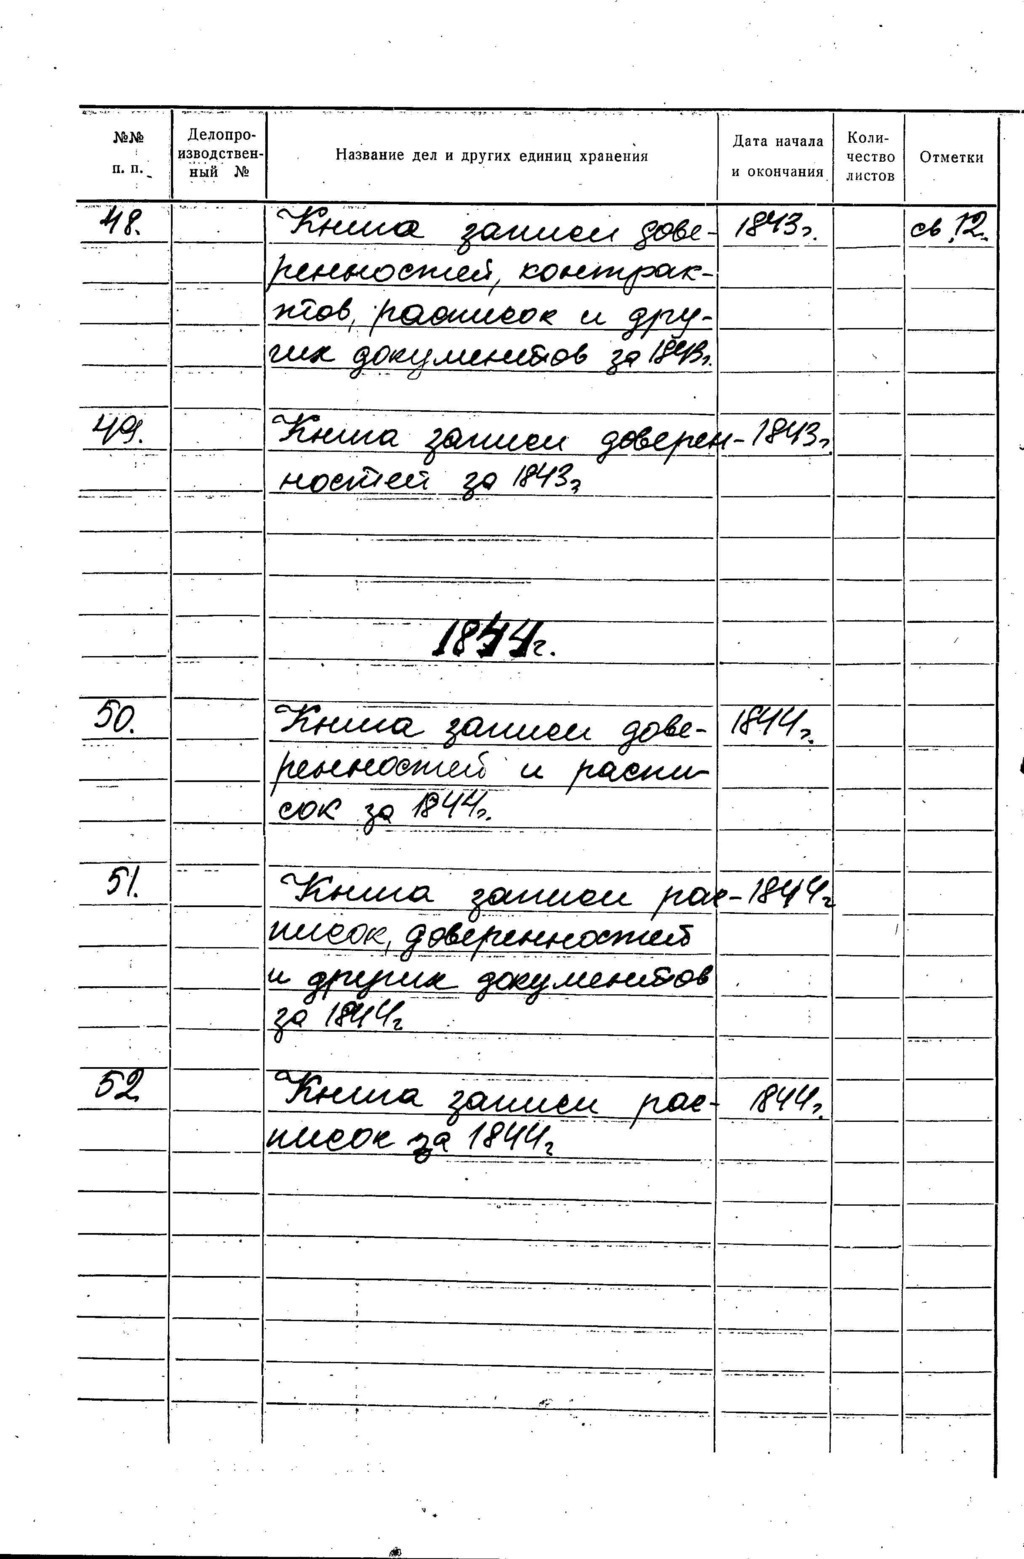 №№ п. п.
Делопро-
изводствен-
ный №
Название дел и других единиц хранения
Дата начала
и окончания
Коли-
чество
листов
Отметки
48. Книга записи дове- 1843г. св. 12.
ренностей, контрак-
тов, расписок и дру-
гих документов за 1843г.
49. Книга записи доверен- 1843г.
ностей за 1843г
1844г.
50. Книга записи дове- 1844г.
ренностей и распи-
сок за 1844г.
51. Книга записи рас- 1844г
писок, доверенностей
и других документов
за 1844г
52. Книга записи рас- 1844г.
писок за 1844г